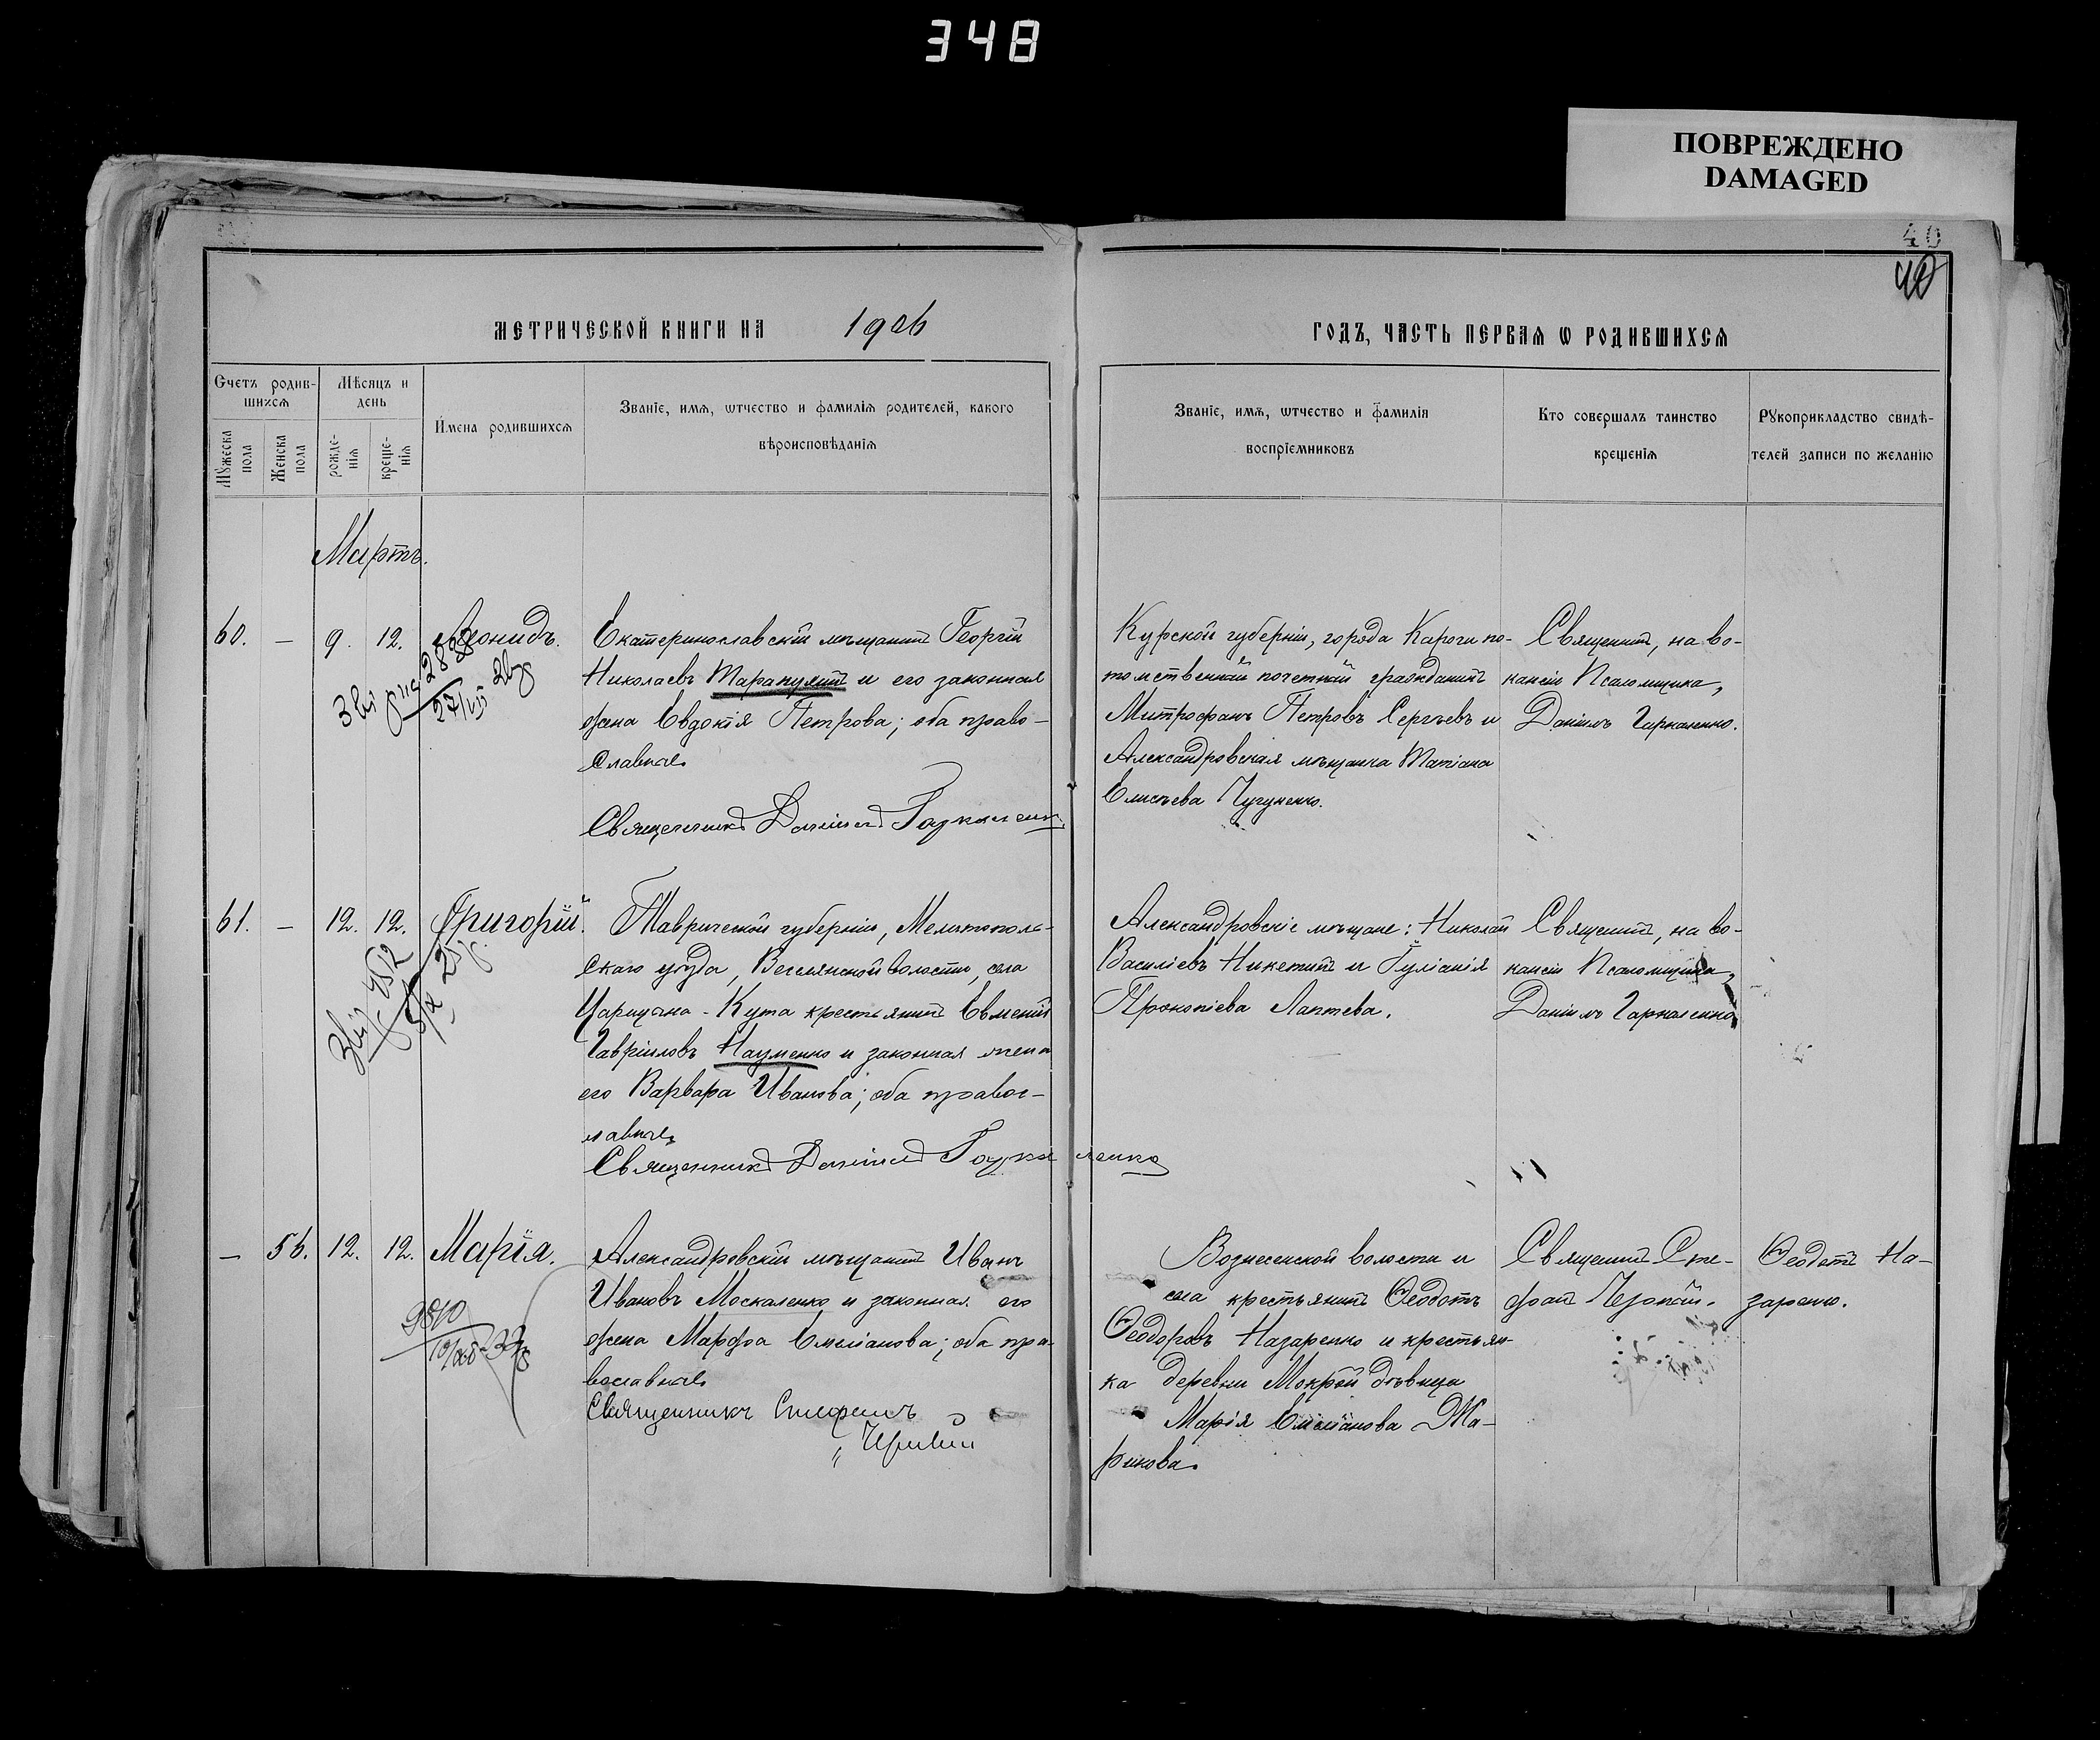 348
ПОВРЕЖДЕНО
DAMAGED
40
40
МЕТРИЧЕСКОЙ КНИГИ НА 1906
ГОДЪ, ЧАСТЬ ПЕРВАЯ Ѡ РОДИВШИХСЯ
Счетъ родив-
шихся
Мѣсяцъ и
день
Мꙋжеска
пола
Женска
пола
рожде-
нія
креще-
нія
Имена родившихся
Званіе, имя, ѡтчество и фамилія родителей, какого
вѣроисповѣданія
Званіе, имя, ѡтчество и фамилія
воспріемниковъ
Кто совершалъ таинство
крещенія
Рꙋкоприкладство свидѣ-
телей записи по желанію
Мартъ.
60. — 9. 12. Леонидъ.
Екатеринославскій мѣщанинъ Георгій
Николаевъ Таранухинъ и его законная
жена Евдокія Петрова; оба право-
славные.
Священникъ Даніилъ Гаркаленко
2888
27/VII
Курской губерніи, города Карочи по-
томственный почетный гражданинъ
Митрофанъ Петровъ Сергѣевъ и
Александровская мѣщанка Татіана
Елисѣева Чугуненко.
Священникъ, на во-
кансіи Псаломщика,
Даніилъ Гаркаленко.
61. — 12. 12. Григорій.
Таврической губерніи, Мелитополь-
скаго уѣзда, Веселянской волости, села
Царицына-Кута крестьянинъ Евменій
Гавріиловъ Науменко и законная жена
его Варвара Иванова; оба правос-
лавные.
Священникъ Даніилъ Гаркаленко
4512
5/X 25 г.
Александровскіе мѣщане: Николай
Василіевъ Никетинъ и Гуліанія
Прокопіева Лаптева.
Священникъ, на во-
кансіи Псаломщика,
Даніилъ Гаркаленко
— 56. 12. 12. Марія.
Александровскій мѣщанинъ Иванъ
Ивановъ Москаленко и законная его
жена Марфа Емиліанова; оба пра-
вославные.
Священникъ Стефанъ
9810
Вознесенской волости и
села крестьянинъ Ѳеодотъ
Ѳеодоровъ Назаренко и крестьян-
ка деревни Мокрой дѣвица
Марія Емиліанова Жа-
рикова.
Священникъ Сте-
фанъ
Ѳеодотъ На-
заренко.